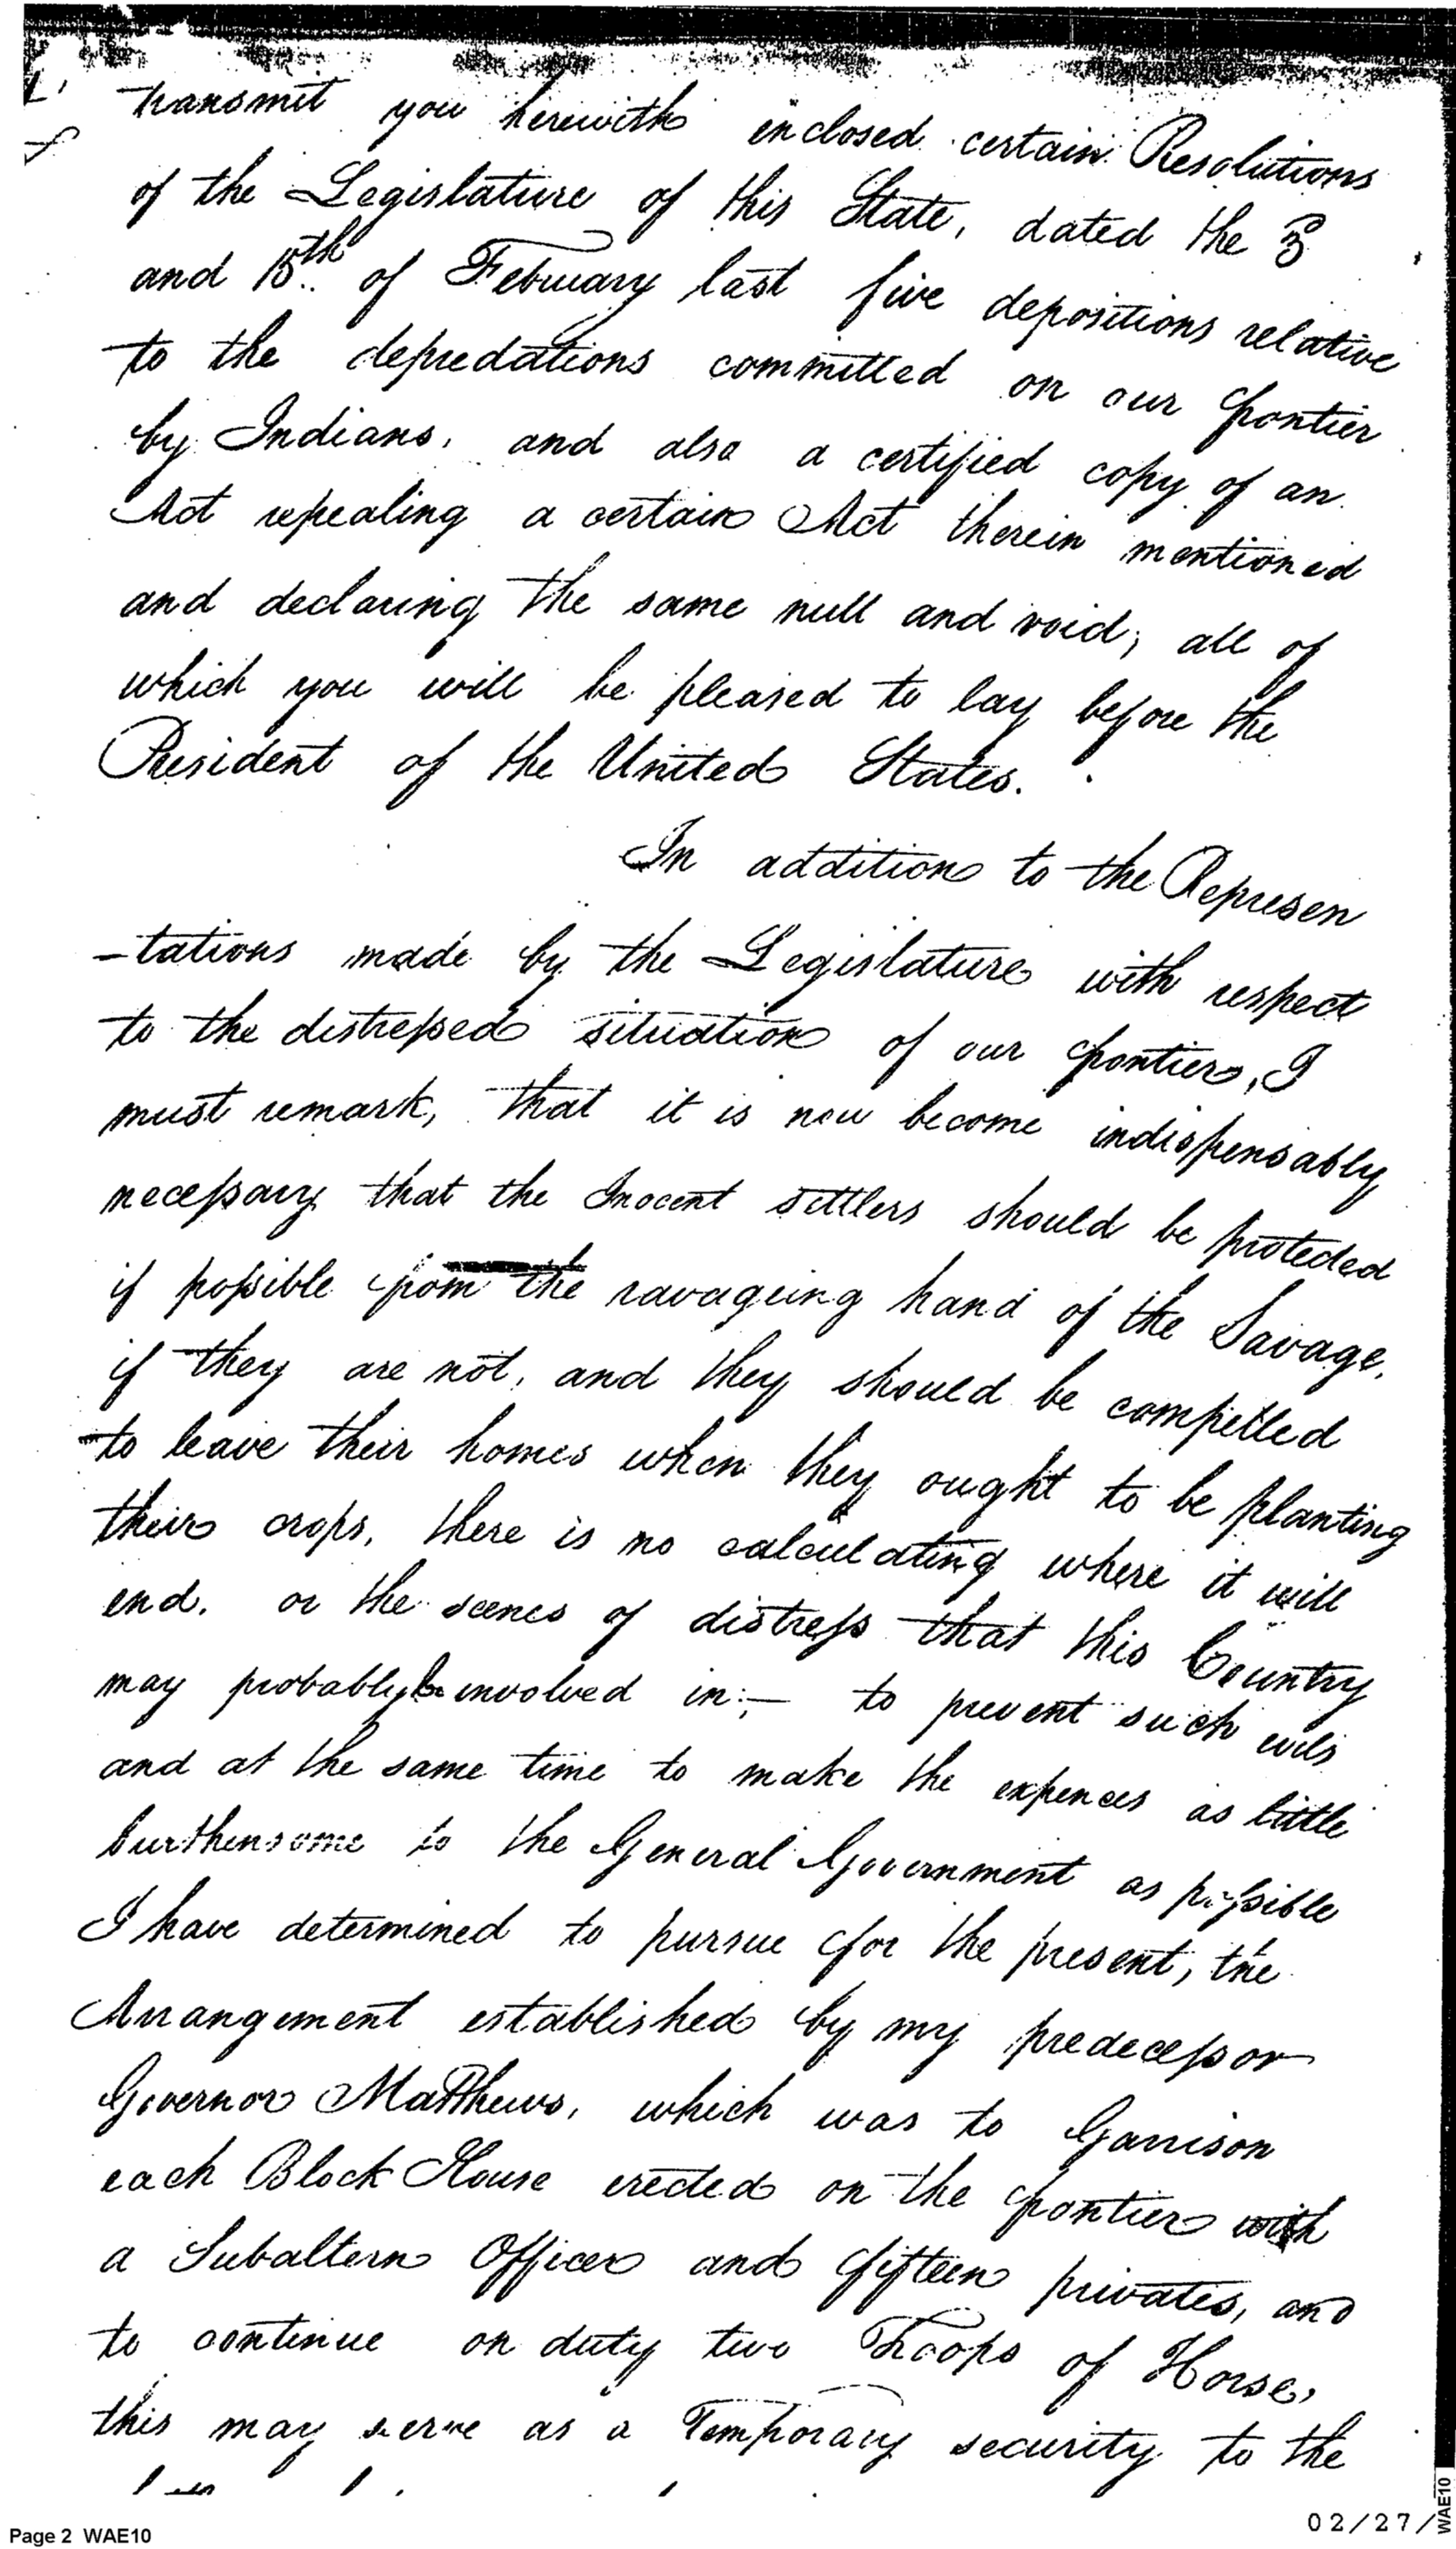 transmit you herewith enclosed certain Resolutions
of the Legislature of this State, dated the 3
and 15th of February last five depositions relative
to the depredations committed on our frontier
by Indians, and also a certified copy of an
Act repealing a certain Act therein mentioned
and declaring the same null and void; all of
which you will be pleased to lay before the
President of the United States.
In addition to the Represen
-tations made by the Legislature with respect
to the distressed situation of our frontier, I
must remark, that it is now become indispensably
necessary that the Inocent settlers should be protected
if possible from the ravageing hand of the Savage,
if they are not, and they should be compelled
to leave their homes when they ought to be planting
their crops, there is no calculating where it will
end. or the scenes of distress that this Country
may probably be involved in:— to prevent such evils
and at the same time to make the expences as little
burthensome to the General Government as possible
I have determined to pursue for the present, the
Arrangement established by my predecessor
Governor Matthews, which was to Garrison
each Block House erected on the frontier with
a Subaltern Officer and fifteen privates, and
to continue on duty two Troops of Horse,
this may serve as a Temporary security to the
02/27/
Page 2 WAE10
WAE10